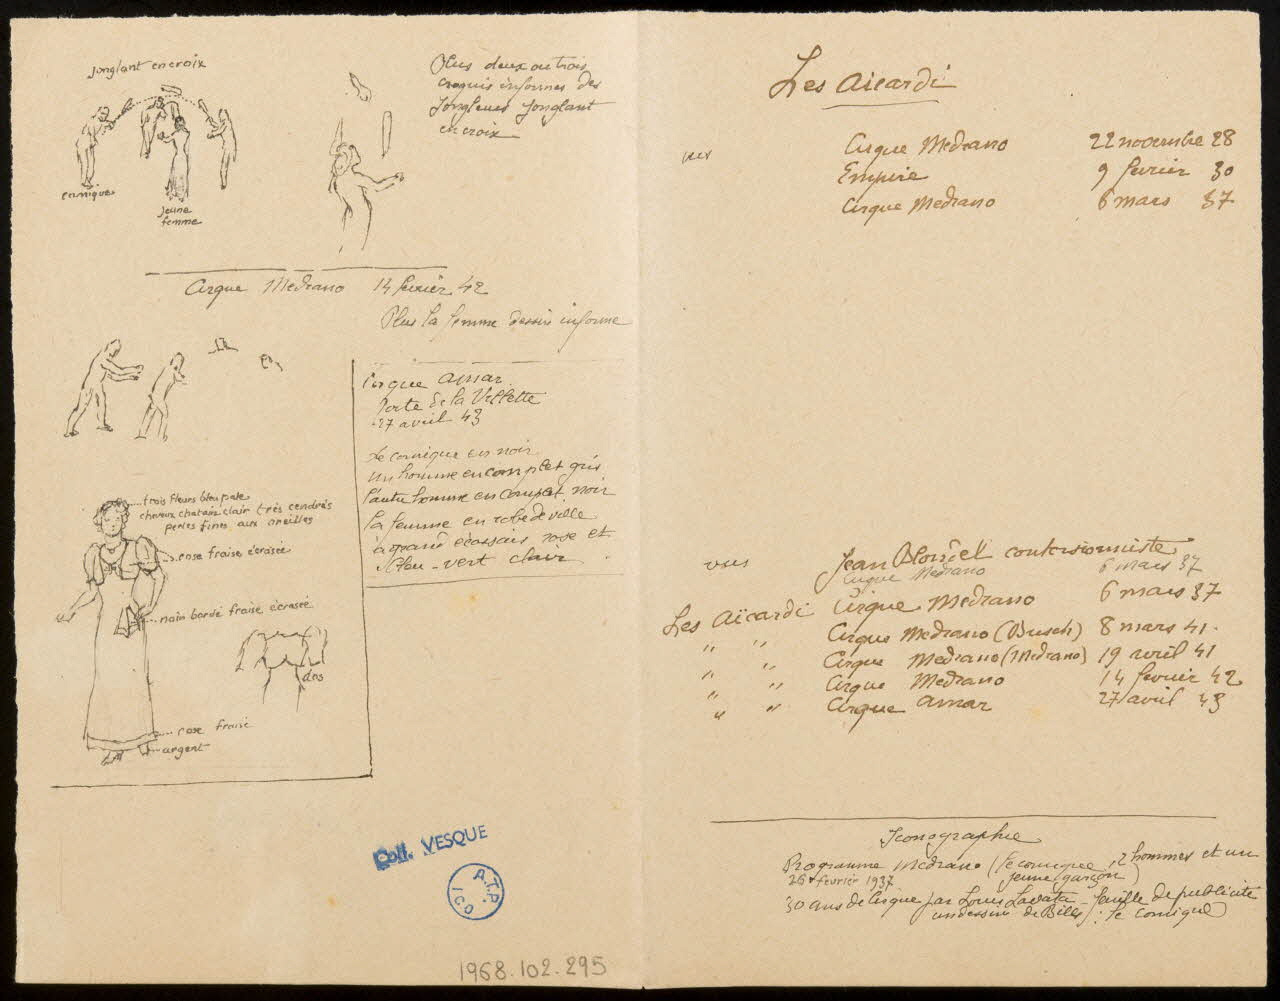 jonglant en croix
comique
jeune
femme
Plus deux ou trois
croquis informes des
jongleurs jonglant
en croix
Cirque Medrano 14 février 42
Plus la femme dessin informe
Cirque Amar
Porte de la Villette
27 avril 43
Le comique en noir
un homme en complet gris
l'autre homme en complet noir
la femme en robe de ville
à grand écossais rose et
bleu-vert clair
trois fleurs bleu pale
cheveux chatain clair très cendrés
perles fines aux oreilles
rose fraise écrasée
noir bordé fraise écrasée
dos
rose fraise
argent
Coll. VESQUE
A.T.P.
1968.102.295
Les Aicardi
vus Cirque Medrano 22 novembre 28
Empire 9 février 30
Cirque Medrano 6 mars 37
vus Jean Blondel contorsionniste
Cirque Medrano 6 mars 37
Les Aïcardi Cirque Medrano 6 mars 37
" " Cirque Medrano (Busch) 8 mars 41.
" " Cirque Medrano (Medrano) 19 avril 41
" " Cirque Medrano 14 février 42
" " Cirque Amar 27 avril 43
Iconographie
Programme Medrano (le comique, 2 hommes et un
26 février 1937 jeune garçon)
30 ans de Cirque par Louis Lavata - feuille de publicité
un dessin de Bills : le comique